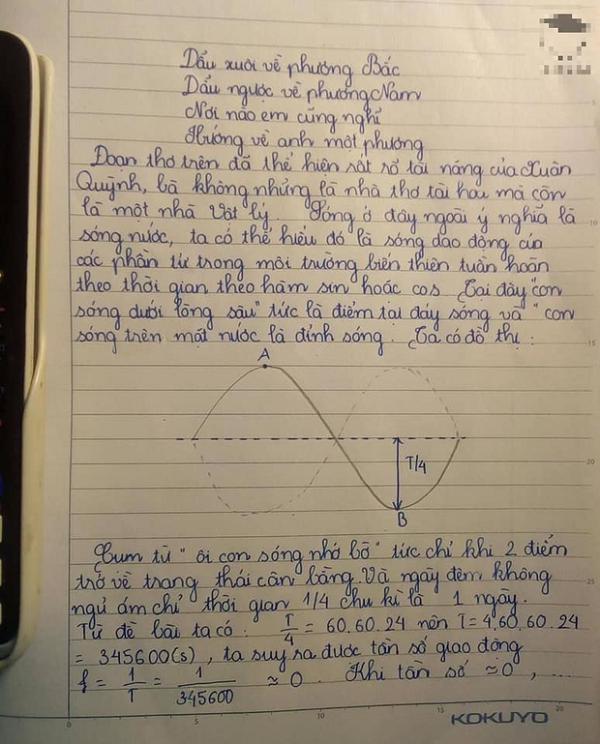 Dẫu xuôi về phương Bắc
Dẫu ngược về phương Nam
Nơi nào em cũng nghĩ
Hướng về anh một phương
Đoạn thơ trên đã thể hiện rất rõ tài năng của Xuân
Quỳnh, bà không những là nhà thơ tài hoa mà còn
là một nhà Vật lý. Sóng ở đây ngoài ý nghĩa là
sóng nước, ta có thể hiểu đó là sóng dao động của
các phần tử trong môi trường biến thiên tuần hoàn
theo thời gian theo hàm sin hoặc cos. Tại đây "con
sóng dưới lòng sâu" tức là điểm tại đáy sóng và "con
sóng trên mặt nước là đỉnh sóng. Ta có đồ thị:
A
T/4
B
Cụm từ "ôi con sóng nhớ bờ" tức chỉ khi 2 điểm
trở về trạng thái cân bằng. Và ngày đêm không
ngủ ám chỉ thời gian 1/4 chu kì là 1 ngày.
Từ đề bài ta có. T/4 = 60.60.24 nên T = 4.60.60.24
= 345600(s), ta suy ra được tần số giao động
f = 1/T = 1/345600 ≈ 0. Khi tần số ≈ 0, ...
0 5 10 15 20
KOKUYO